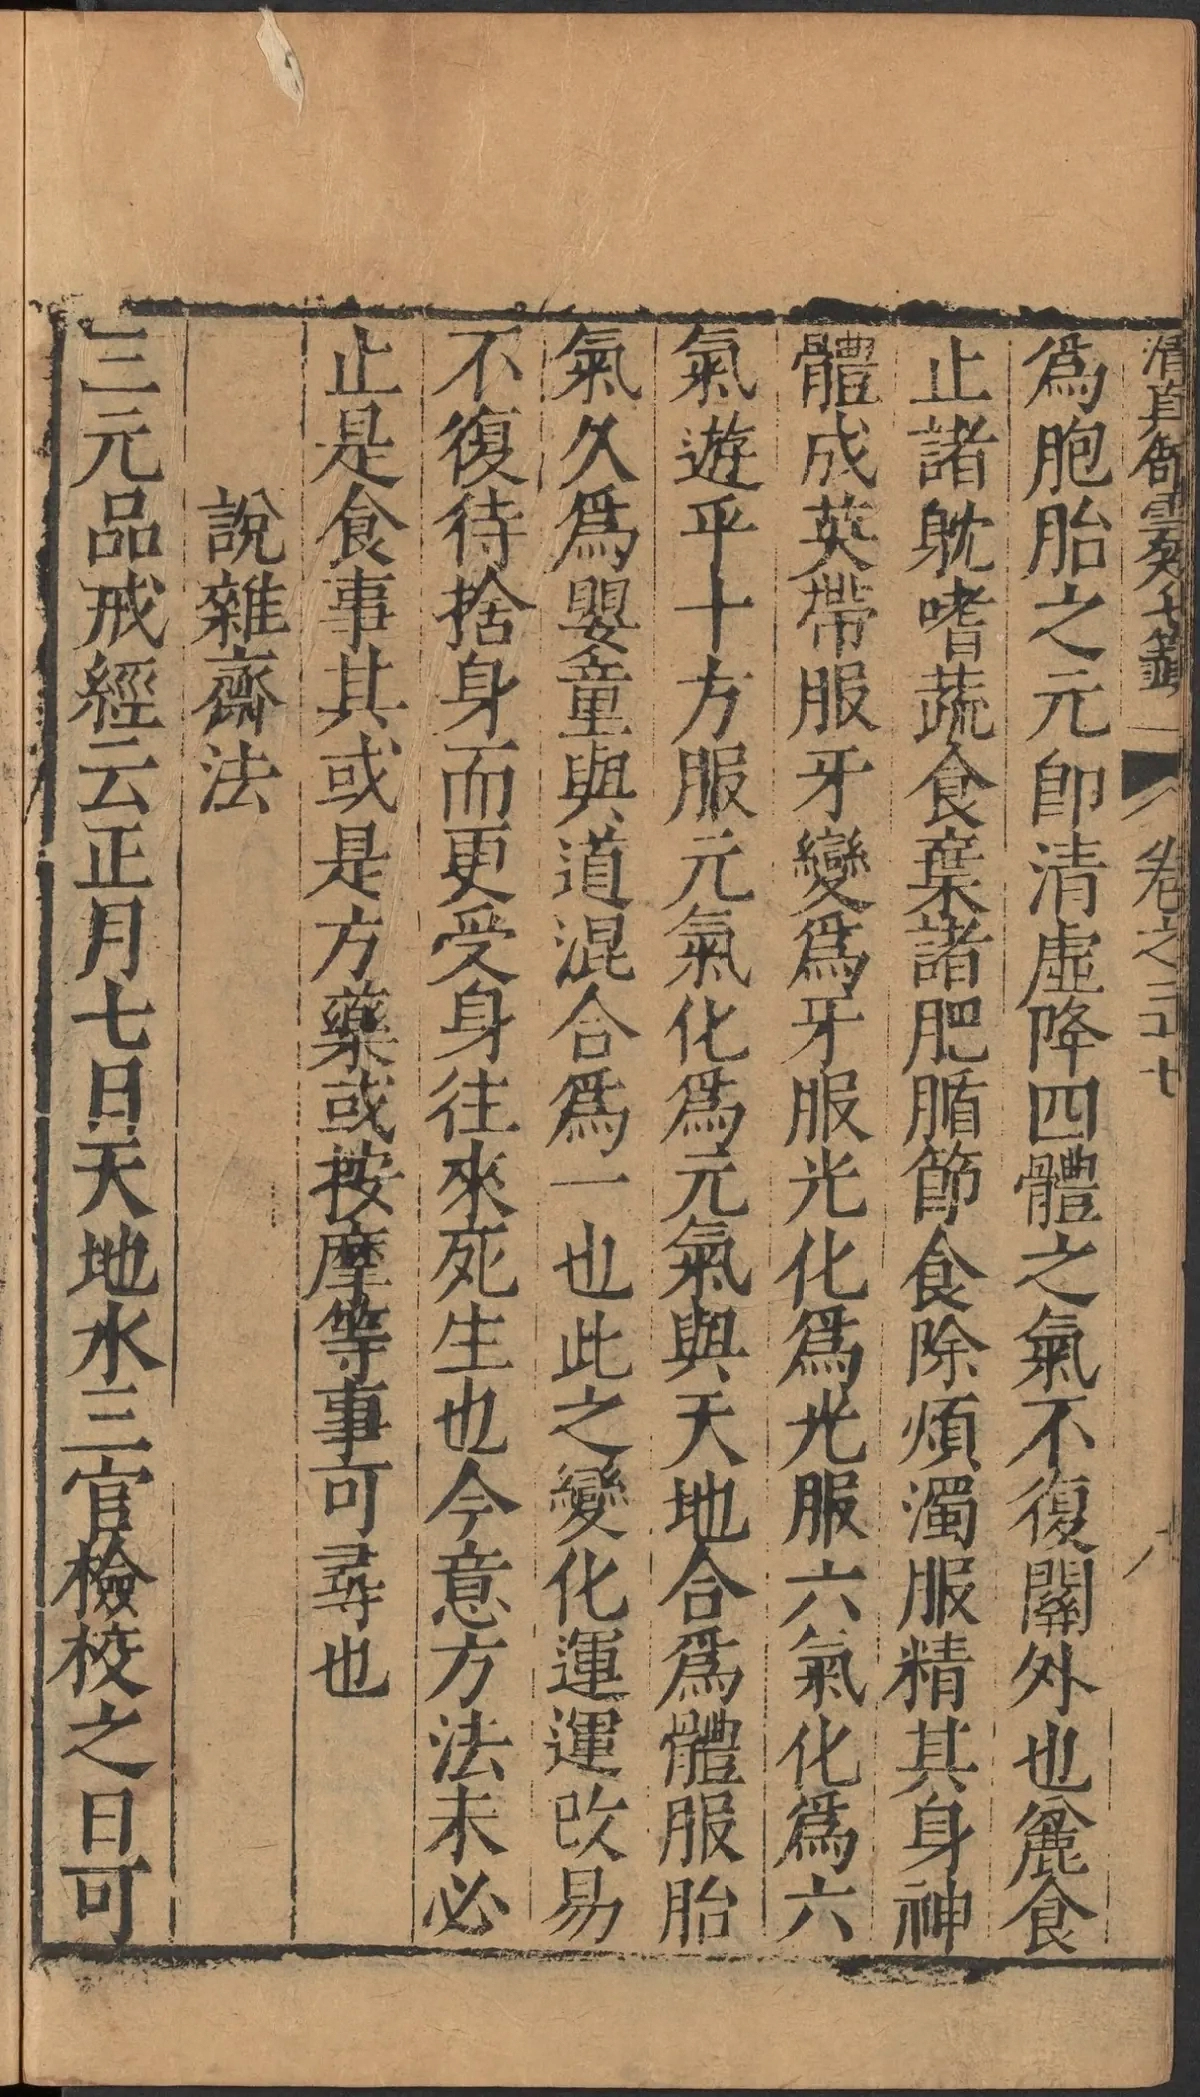 清真館雲笈七籤 卷之三十七 八
爲胞胎之元即清虛降四體之氣不復關外也麄食
止諸躭嗜蔬食棄諸肥腯節食除煩濁服精其身神
體成英帶服牙變爲牙服光化爲光服六氣化爲六
氣遊乎十方服元氣化爲元氣與天地合爲體服胎
氣久爲嬰童與道混合爲一也此之變化運運改易
不復待捨身而更受身往來死生也今意方法未必
止是食事其或是方藥或按摩等事可尋也
說雜齋法
三元品戒經云正月七日天地水三官檢校之日可